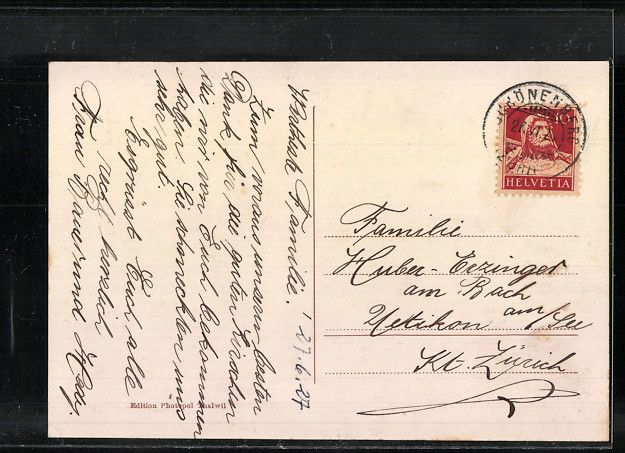 Wertheste Familie!
Zum voraus unsern besten
Dank für die guten
die wir von Euch bekommen
haben. Sie schmeckten uns
sehr gut.
Es grüsst Euch alle
recht herzlich
Frau
27.6.27
Edition Photopol Thalwil
SCHÖNENBERG
10
HELVETIA
Familie
Huber-Erzinger
am Bach
Uetikon am/See
Kt. Zürich